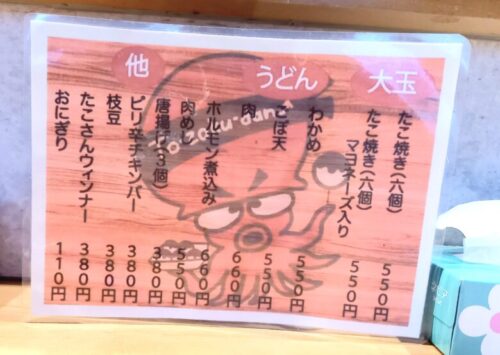 大玉
たこ焼き(六個) 550円
たこ焼き(六個)
マヨネーズ入り 550円
うどん
わかめ 550円
ごぼ天 550円
肉 660円
他
ホルモン煮込み 660円
肉めし 550円
唐揚げ(3個) 380円
ピリ辛チキンバー 380円
枝豆 380円
たこさんウィンナー 380円
おにぎり 110円